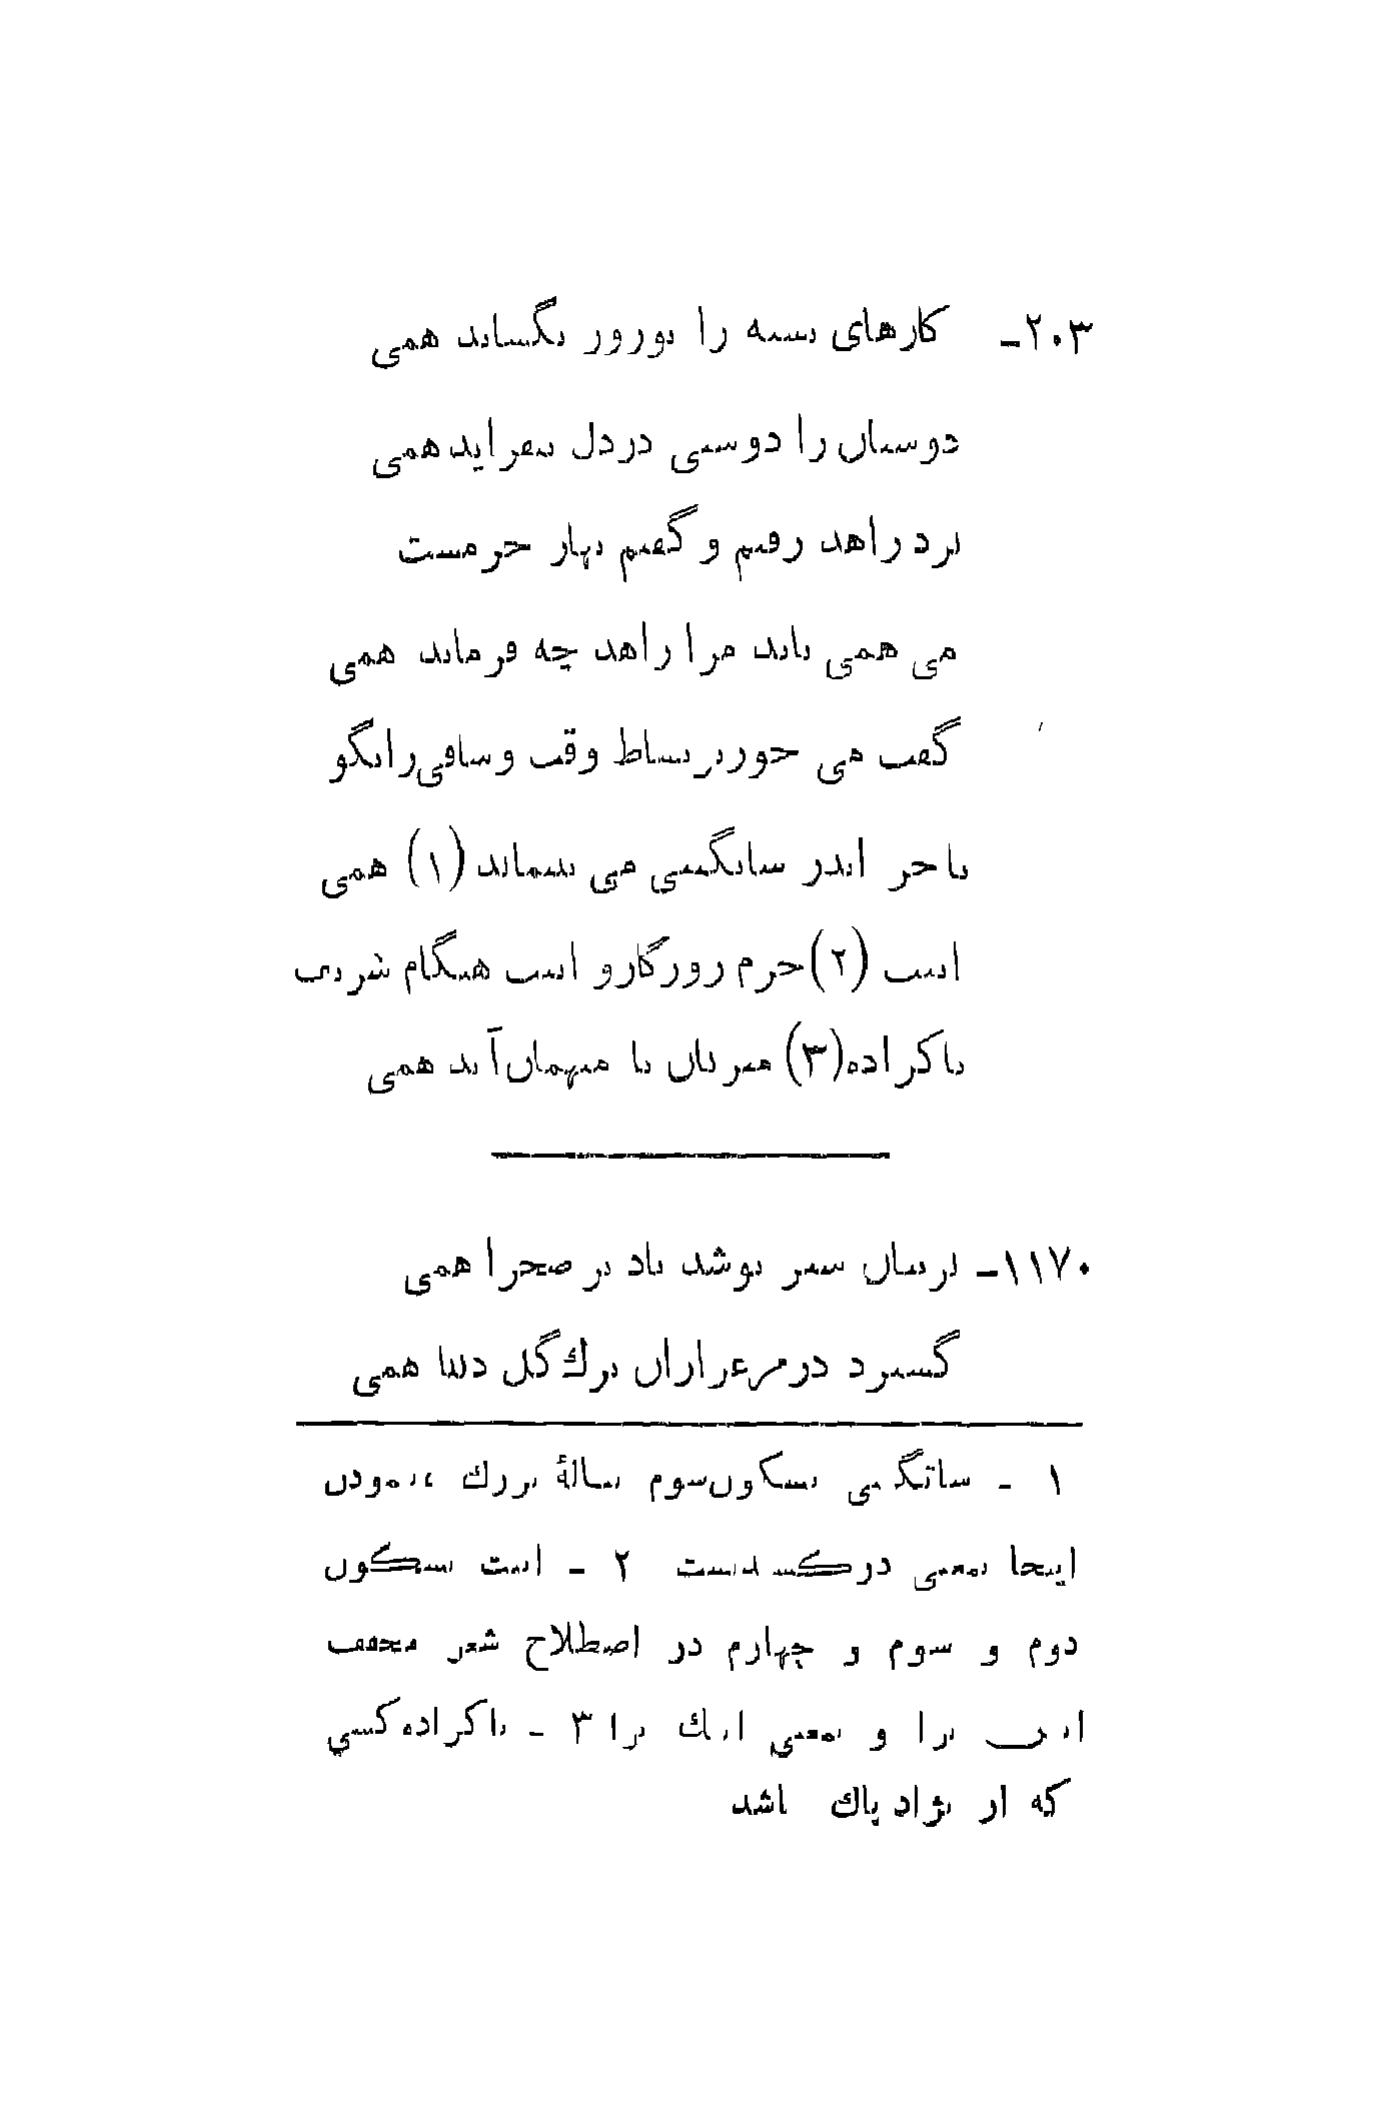 ۲۰۳ـ کارهای بسته را نوروز بگشاید همی
دوستان را دوستی در دل بیفزاید همی
نزد زاهد رفتم و گفتم بهار خرمست
می همی باید مرا زاهد چه فرماید همی
گفت می خور بر بساط وقت و ساقی را بگو
تا جز اندر ساتگینی می نپیماید (۱) همی
اینت (۲) خرم روزگار و اینت هنگام شریف
پاکزاده (۳) میزبان با میهمان آید همی
۱۱۷۰ـ فرش سبز پوشد باد بر صحرا همی
گسترد در مرغزاران برگ گل دیبا همی
۱ ـ ساتگینی بسکون سوم پیالهٔ بزرك پیمودن
اینجا بمعنی در کشیدنست ۲ ـ اینت بسکون
دوم و سوم و چهارم در اصطلاح شعر مخفف
این ترا و بمعنی اینك ترا ۳ ـ پاکزاده کسی
که از نژاد پاك باشد